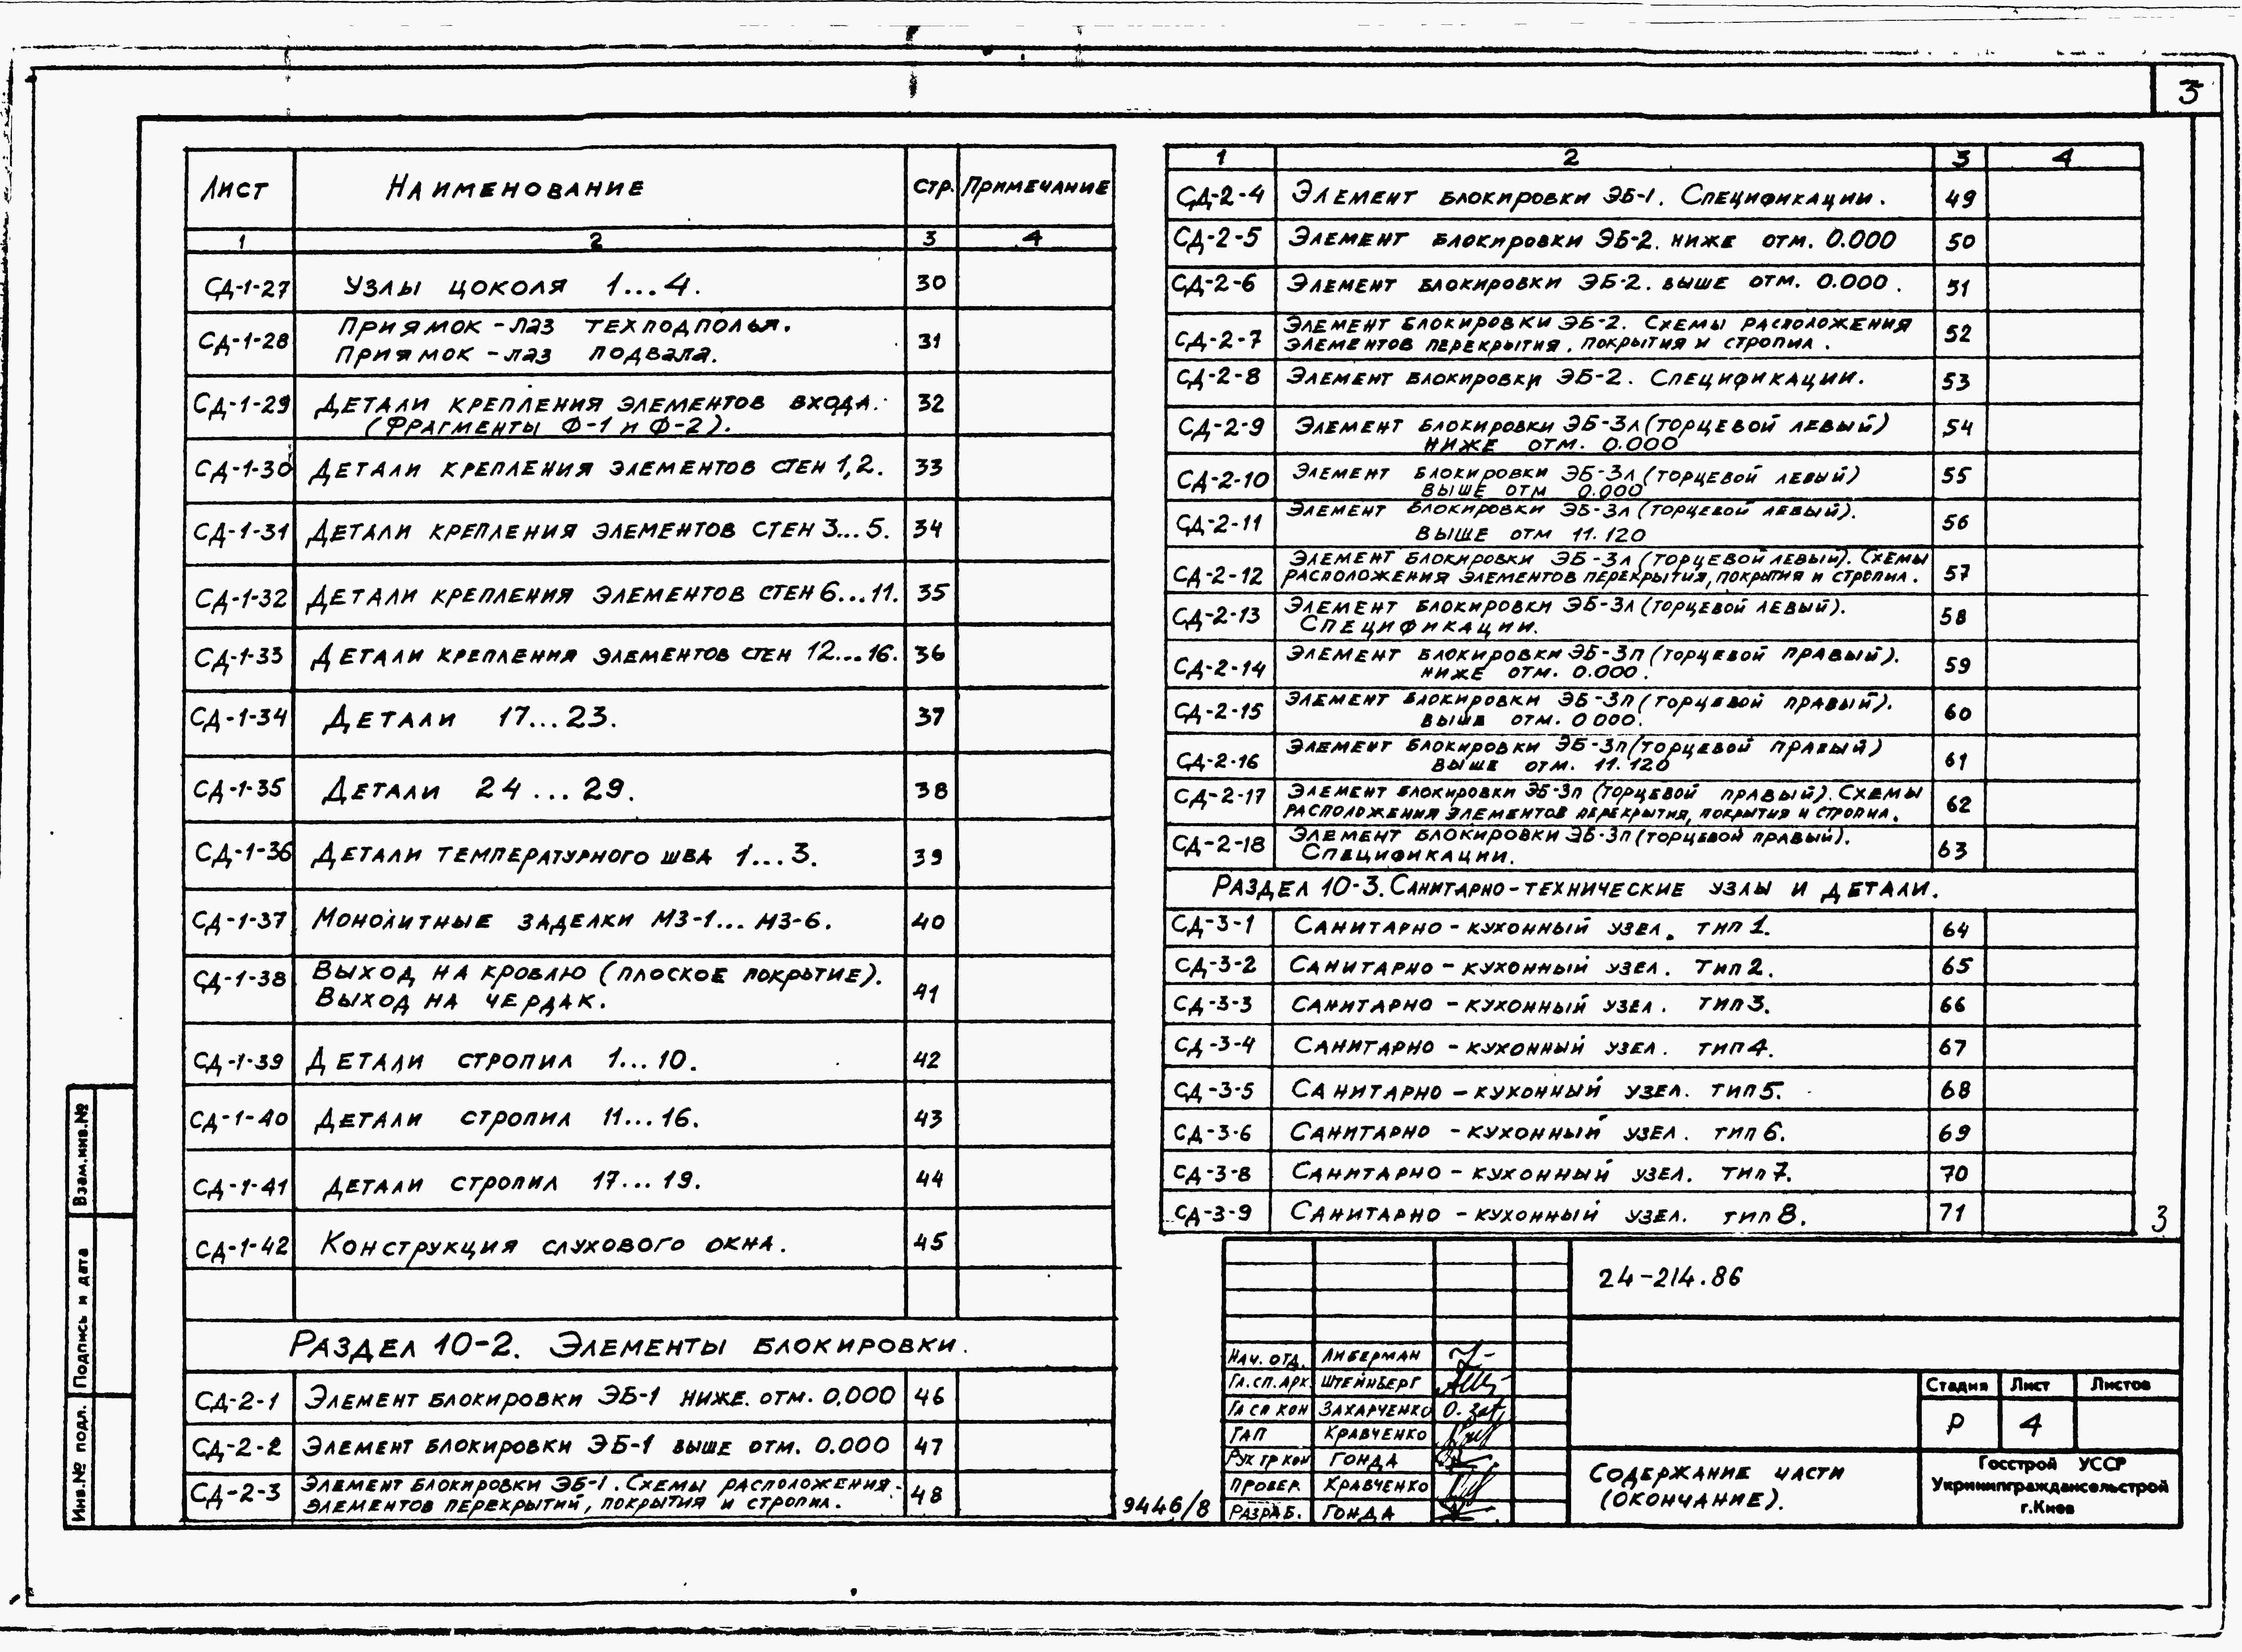 3
Лист Наименование Стр. Примечание
1 2 3 4
СД-1-27 Узлы цоколя 1...4. 30
СД-1-28 Приямок-лаз техподполья. 31
Приямок-лаз подвала.
СД-1-29 Детали крепления элементов входа. 32
(Фрагменты Ф-1 и Ф-2).
СД-1-30 Детали крепления элементов стен 1,2. 33
СД-1-31 Детали крепления элементов стен 3...5. 34
СД-1-32 Детали крепления элементов стен 6...11. 35
СД-1-33 Детали крепления элементов стен 12...16. 36
СД-1-34 Детали 17...23. 37
СД-1-35 Детали 24...29. 38
СД-1-36 Детали температурного шва 1...3. 39
СД-1-37 Монолитные заделки МЗ-1...МЗ-6. 40
СД-1-38 Выход на кровлю (плоское покрытие). 41
Выход на чердак.
СД-1-39 Детали стропил 1...10. 42
СД-1-40 Детали стропил 11...16. 43
СД-1-41 Детали стропил 17...19. 44
СД-1-42 Конструкция слухового окна. 45
Раздел 10-2. Элементы блокировки.
СД-2-1 Элемент блокировки ЭБ-1 ниже. отм. 0.000 46
СД-2-2 Элемент блокировки ЭБ-1 выше отм. 0.000 47
СД-2-3 Элемент блокировки ЭБ-1. Схемы расположения 48
элементов перекрытий, покрытия и стропил.
1 2 3 4
СД-2-4 Элемент блокировки ЭБ-1. Спецификации. 49
СД-2-5 Элемент блокировки ЭБ-2. ниже отм. 0.000 50
СД-2-6 Элемент блокировки ЭБ-2. выше отм. 0.000. 51
СД-2-7 Элемент блокировки ЭБ-2. Схемы расположения 52
элементов перекрытия, покрытия и стропил.
СД-2-8 Элемент блокировки ЭБ-2. Спецификации. 53
СД-2-9 Элемент блокировки ЭБ-3л (торцевой левый) 54
ниже отм. 0.000
СД-2-10 Элемент блокировки ЭБ-3л (торцевой левый) 55
выше отм 0.000
СД-2-11 Элемент блокировки ЭБ-3л (торцевой левый). 56
выше отм 11.120
СД-2-12 Элемент блокировки ЭБ-3л (торцевой левый). Схемы 57
расположения элементов перекрытия, покрытия и стропил.
СД-2-13 Элемент блокировки ЭБ-3л (торцевой левый). 58
Спецификации.
СД-2-14 Элемент блокировки ЭБ-3п (торцевой правый). 59
ниже отм. 0.000.
СД-2-15 Элемент блокировки ЭБ-3п (торцевой правый). 60
выше отм. 0 000.
СД-2-16 Элемент блокировки ЭБ-3п (торцевой правый) 61
выше отм. 11.120
СД-2-17 Элемент блокировки ЭБ-3п (торцевой правый). Схемы 62
расположения элементов перекрытия, покрытия и стропил.
СД-2-18 Элемент блокировки ЭБ-3п (торцевой правый). 63
Спецификации.
Раздел 10-3. Санитарно-технические узлы и детали.
СД-3-1 Санитарно-кухонный узел. тип 1. 64
СД-3-2 Санитарно-кухонный узел. Тип 2. 65
СД-3-3 Санитарно-кухонный узел. тип 3. 66
СД-3-4 Санитарно-кухонный узел. тип 4. 67
СД-3-5 Санитарно-кухонный узел. тип 5. 68
СД-3-6 Санитарно-кухонный узел. тип 6. 69
СД-3-8 Санитарно-кухонный узел. тип 7. 70
СД-3-9 Санитарно-кухонный узел. тип 8. 71
3
24-214.86
Нач. отд. Либерман
Гл. сп. арх. Штейнберг
Гл сп кон Захарченко О. Зах
ГАП Кравченко
Рук гр кон Гонда
Провер. Кравченко
Разраб. Гонда
Стадия Лист Листов
Р 4
Содержание части
(окончание).
Госстрой УССР
Укрниипграждансельстрой
г.Киев
9446/8
Взам.инв.№
Подпись и дата
Инв.№ подл.